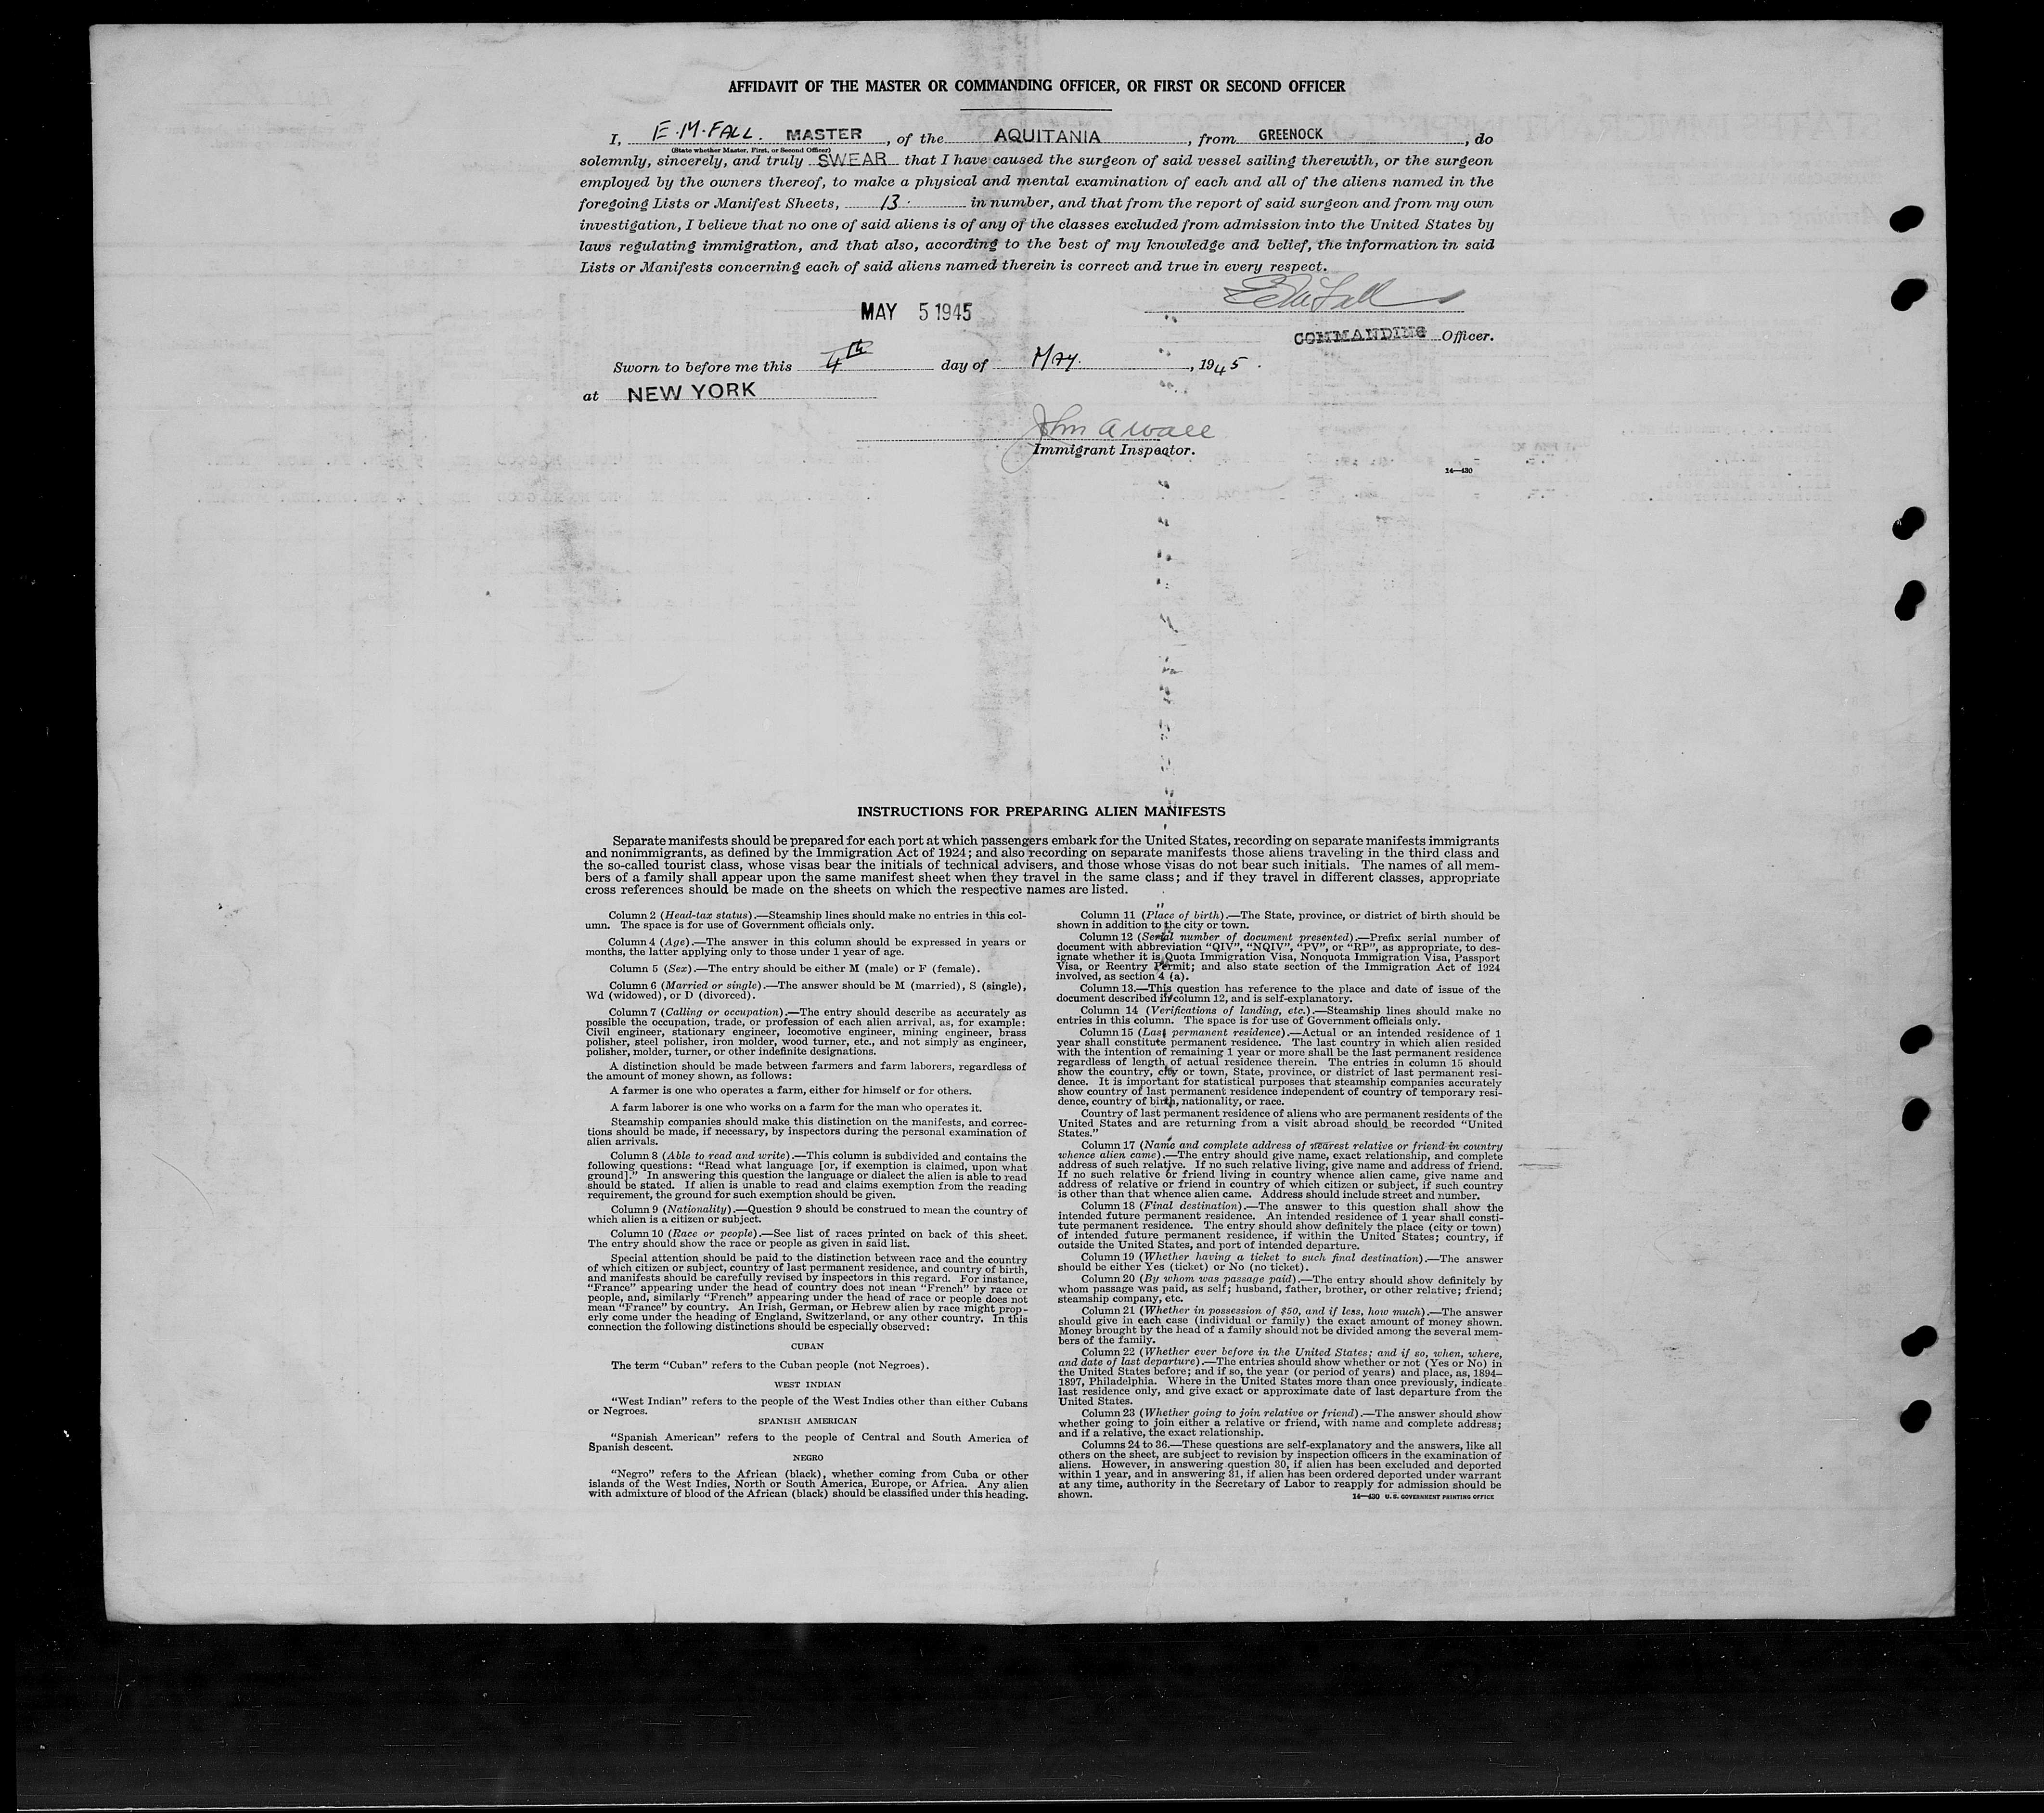 AFFIDAVIT OF THE MASTER OR COMMANDING OFFICER, OR FIRST OR SECOND OFFICER
I, E.M.FALL. MASTER, of the AQUITANIA, from GREENOCK, do
(State whether Master, First, or Second Officer)
solemnly, sincerely, and truly SWEAR that I have caused the surgeon of said vessel sailing therewith, or the surgeon
employed by the owners thereof, to make a physical and mental examination of each and all of the aliens named in the
foregoing Lists or Manifest Sheets, 13 in number, and that from the report of said surgeon and from my own
investigation, I believe that no one of said aliens is of any of the classes excluded from admission into the United States by
laws regulating immigration, and that also, according to the best of my knowledge and belief, the information in said
Lists or Manifests concerning each of said aliens named therein is correct and true in every respect.
E M Fall
MAY 5 1945
COMMANDING Officer.
Sworn to before me this 4th day of May., 1945.
at NEW YORK
John A Wall
Immigrant Inspector.
14—430
INSTRUCTIONS FOR PREPARING ALIEN MANIFESTS
Separate manifests should be prepared for each port at which passengers embark for the United States, recording on separate manifests immigrants
and nonimmigrants, as defined by the Immigration Act of 1924; and also recording on separate manifests those aliens traveling in the third class and
the so-called tourist class, whose visas bear the initials of technical advisers, and those whose visas do not bear such initials. The names of all mem-
bers of a family shall appear upon the same manifest sheet when they travel in the same class; and if they travel in different classes, appropriate
cross references should be made on the sheets on which the respective names are listed.
Column 2 (Head-tax status).—Steamship lines should make no entries in this col-
umn. The space is for use of Government officials only.
Column 4 (Age).—The answer in this column should be expressed in years or
months, the latter applying only to those under 1 year of age.
Column 5 (Sex).—The entry should be either M (male) or F (female).
Column 6 (Married or single).—The answer should be M (married), S (single),
Wd (widowed), or D (divorced).
Column 7 (Calling or occupation).—The entry should describe as accurately as
possible the occupation, trade, or profession of each alien arrival, as, for example:
Civil engineer, stationary engineer, locomotive engineer, mining engineer, brass
polisher, steel polisher, iron molder, wood turner, etc., and not simply as engineer,
polisher, molder, turner, or other indefinite designations.
A distinction should be made between farmers and farm laborers, regardless of
the amount of money shown, as follows:
A farmer is one who operates a farm, either for himself or for others.
A farm laborer is one who works on a farm for the man who operates it.
Steamship companies should make this distinction on the manifests, and correc-
tions should be made, if necessary, by inspectors during the personal examination of
alien arrivals.
Column 8 (Able to read and write).—This column is subdivided and contains the
following questions: "Read what language [or, if exemption is claimed, upon what
ground]." In answering this question the language or dialect the alien is able to read
should be stated. If alien is unable to read and claims exemption from the reading
requirement, the ground for such exemption should be given.
Column 9 (Nationality).—Question 9 should be construed to mean the country of
which alien is a citizen or subject.
Column 10 (Race or people).—See list of races printed on back of this sheet.
The entry should show the race or people as given in said list.
Special attention should be paid to the distinction between race and the country
of which citizen or subject, country of last permanent residence, and country of birth,
and manifests should be carefully revised by inspectors in this regard. For instance,
"France" appearing under the head of country does not mean "French" by race or
people, and, similarly "French" appearing under the head of race or people does not
mean "France" by country. An Irish, German, or Hebrew alien by race might prop-
erly come under the heading of England, Switzerland, or any other country. In this
connection the following distinctions should be especially observed:
CUBAN
The term "Cuban" refers to the Cuban people (not Negroes).
WEST INDIAN
"West Indian" refers to the people of the West Indies other than either Cubans
or Negroes.
SPANISH AMERICAN
"Spanish American" refers to the people of Central and South America of
Spanish descent.
NEGRO
"Negro" refers to the African (black), whether coming from Cuba or other
islands of the West Indies, North or South America, Europe, or Africa. Any alien
with admixture of blood of the African (black) should be classified under this heading.
Column 11 (Place of birth).—The State, province, or district of birth should be
shown in addition to the city or town.
Column 12 (Serial number of document presented).—Prefix serial number of
document with abbreviation "QIV", "NQIV", "PV", or "RP", as appropriate, to des-
ignate whether it is Quota Immigration Visa, Nonquota Immigration Visa, Passport
Visa, or Reentry Permit; and also state section of the Immigration Act of 1924
involved, as section 4 (a).
Column 13.—This question has reference to the place and date of issue of the
document described in column 12, and is self-explanatory.
Column 14 (Verifications of landing, etc.).—Steamship lines should make no
entries in this column. The space is for use of Government officials only.
Column 15 (Last permanent residence).—Actual or an intended residence of 1
year shall constitute permanent residence. The last country in which alien resided
with the intention of remaining 1 year or more shall be the last permanent residence
regardless of length of actual residence therein. The entries in column 15 should
show the country, city or town, State, province, or district of last permanent resi-
dence. It is important for statistical purposes that steamship companies accurately
show country of last permanent residence independent of country of temporary resi-
dence, country of birth, nationality, or race.
Country of last permanent residence of aliens who are permanent residents of the
United States and are returning from a visit abroad should be recorded "United
States."
Column 17 (Name and complete address of nearest relative or friend in country
whence alien came).—The entry should give name, exact relationship, and complete
address of such relative. If no such relative living, give name and address of friend.
If no such relative or friend living in country whence alien came, give name and
address of relative or friend in country of which citizen or subject, if such country
is other than that whence alien came. Address should include street and number.
Column 18 (Final destination).—The answer to this question shall show the
intended future permanent residence. An intended residence of 1 year shall consti-
tute permanent residence. The entry should show definitely the place (city or town)
of intended future permanent residence, if within the United States; country, if
outside the United States, and port of intended departure.
Column 19 (Whether having a ticket to such final destination).—The answer
should be either Yes (ticket) or No (no ticket).
Column 20 (By whom was passage paid).—The entry should show definitely by
whom passage was paid, as self; husband, father, brother, or other relative; friend;
steamship company, etc.
Column 21 (Whether in possession of $50, and if less, how much).—The answer
should give in each case (individual or family) the exact amount of money shown.
Money brought by the head of a family should not be divided among the several mem-
bers of the family.
Column 22 (Whether ever before in the United States; and if so, when, where,
and date of last departure).—The entries should show whether or not (Yes or No) in
the United States before; and if so, the year (or period of years) and place, as, 1894–
1897, Philadelphia. Where in the United States more than once previously, indicate
last residence only, and give exact or approximate date of last departure from the
United States.
Column 23 (Whether going to join relative or friend).—The answer should show
whether going to join either a relative or friend, with name and complete address;
and if a relative, the exact relationship.
Columns 24 to 36.—These questions are self-explanatory and the answers, like all
others on the sheet, are subject to revision by inspection officers in the examination of
aliens. However, in answering question 30, if alien has been excluded and deported
within 1 year, and in answering 31, if alien has been ordered deported under warrant
at any time, authority in the Secretary of Labor to reapply for admission should be
shown.
14—430 U.S. GOVERNMENT PRINTING OFFICE